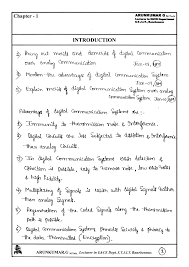 Chapter - 1
ARUNKUMAR G M.Tech
Lecturer in E&CE Dept.
S.T.J.I.T, Ranebennur
INTRODUCTION
1) Bring out merits and demerits of digital communication
over analog communication
2) Mention the advantages of digital communication system
3) Explain merits of digital communication system over analog
communication
Advantages of digital Communication Systems:
1) Immunity to Transmission noise & Interference.
2) Digital circuits are less subjected to distortion & Interference
than analog circuits.
3) In Digital Communication Systems error detection &
correction is possible, only to
is possible.
4) Multiplexing of Signals is easier with digital Signals rather
than analog Signals.
5) Regeneration of the coded Signals along the transmission
path is possible.
6) Digital Communication Systems provide Security & privacy to
the data transmitted (Encryption)
ARUNKUMAR.G M.Tech, Lecturer in E&CE Dept. S.T.J.I.T, Ranebennur
1